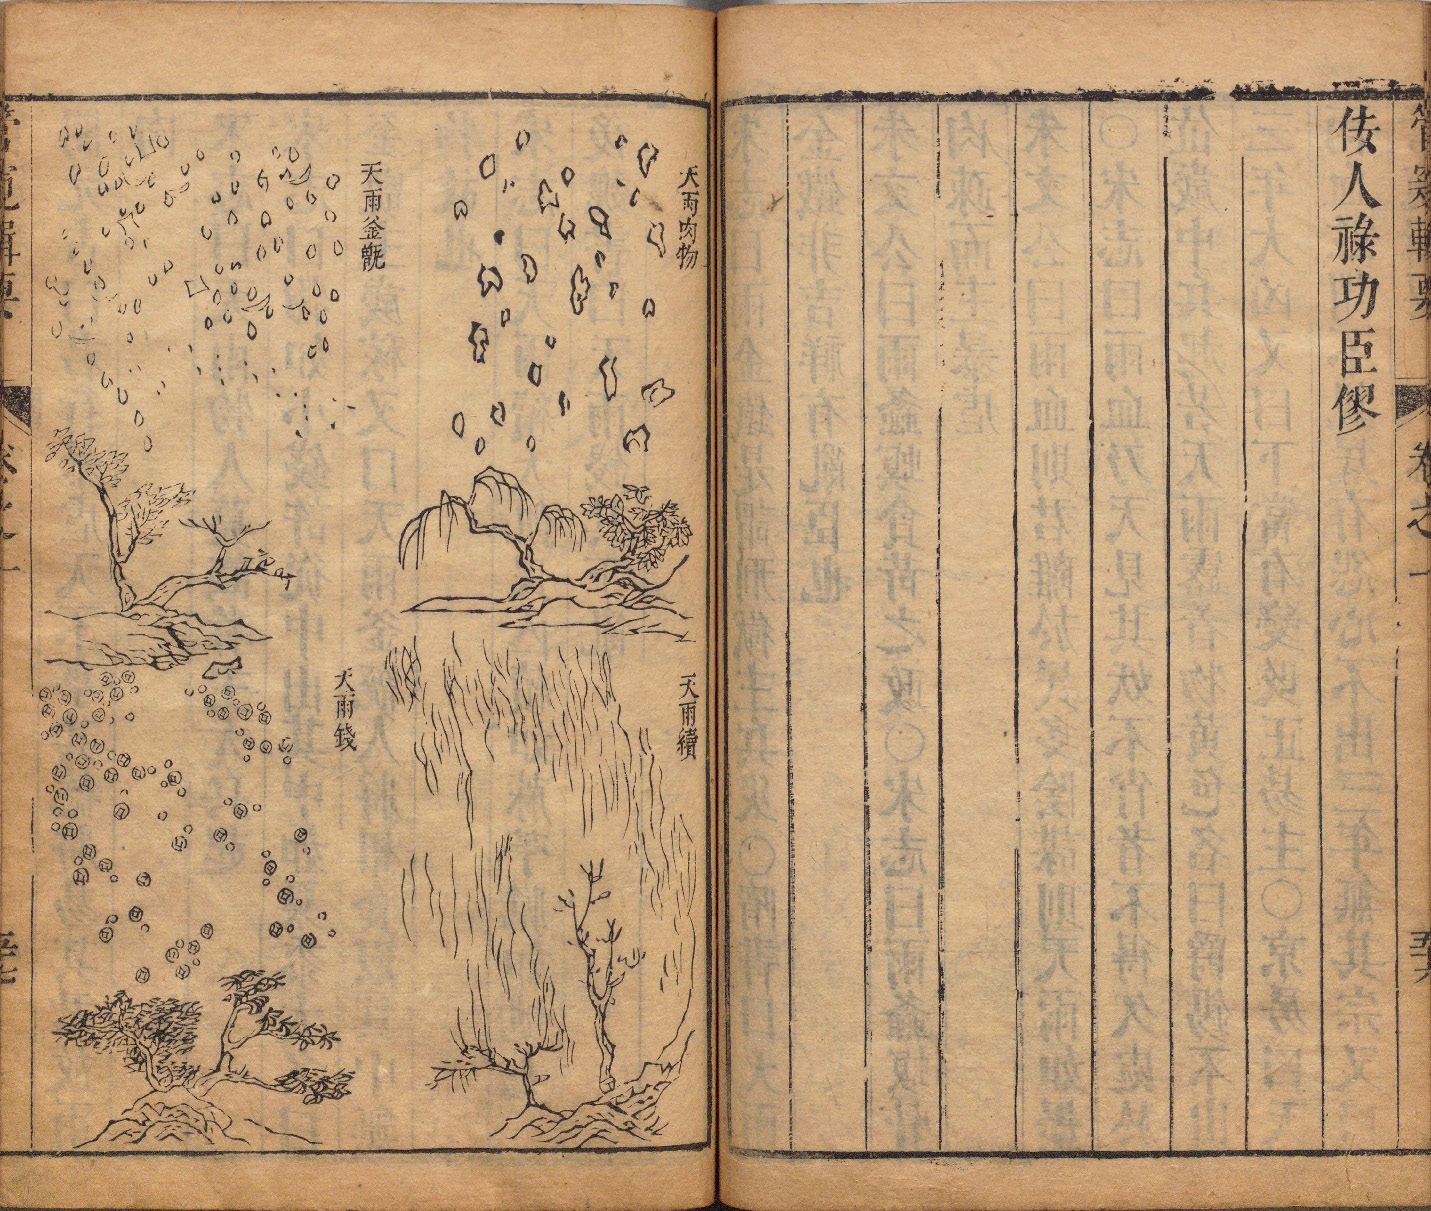 管窺輯要 卷之一
佞人祿功臣僇
天雨肉物
天雨續
天雨釜甑
天雨錢
管窺輯要